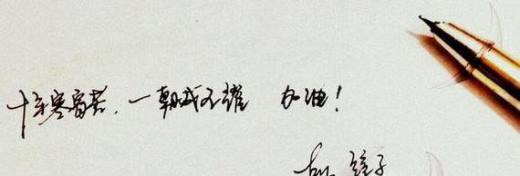 十年寒窗苦，一朝成名耀 加油！
子